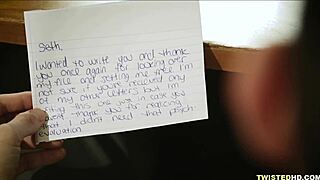 Seth,
I wanted to write you and thank
you once again for looking over
my file and setting me free. I'm
not sure if you've received any
of my other letters but I'm
writing this one just in case you
haven't. thank you for realizing
that I didn't need that psych
evaluation
TWISTEDHD.COM